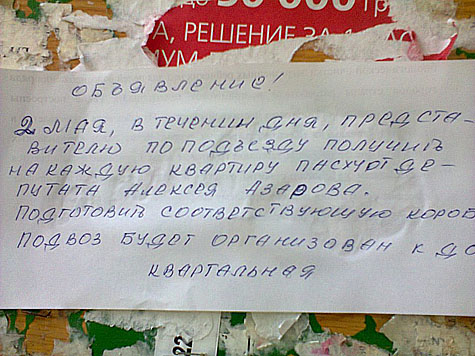 до 50 000 гр
А, РЕШЕНИЕ ЗА
ОБЪЯВЛЕНИЕ!
2 МАЯ, В ТЕЧЕНИИ ДНЯ, ПРЕДСТА-
ВИТЕЛЮ ПО ПОДЪЕЗДУ ПОЛУЧИТЬ
НА КАЖДУЮ КВАРТИРУ ПАСХУ ОТ ДЕ-
ПУТАТА АЛЕКСЕЯ АЗАРОВА.
ПОДГОТОВИТЬ СООТВЕТСТВУЮЩУЮ КОРОБ
ПОДВОЗ БУДЕТ ОРГАНИЗОВАН К ДО
КВАРТАЛЬНАЯ
22